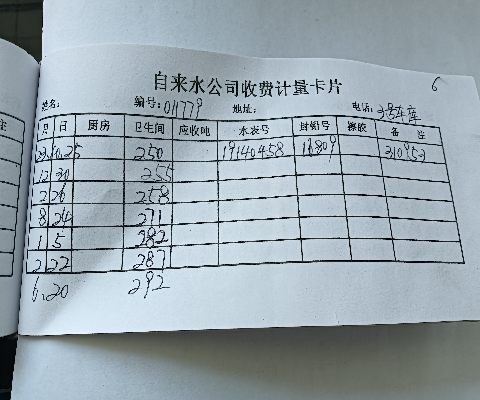 6
自来水公司收费计量卡片
姓名: 编号: 011779 地址: 电话: 3号车库
月 日 厨房 卫生间 应收吨 水表号 封铅号 橡胶 备 注
10.25 250 19140458 16809 310953
12 30 255
2 26 258
8 24 271
1 5 282
2 22 287
6.20 292